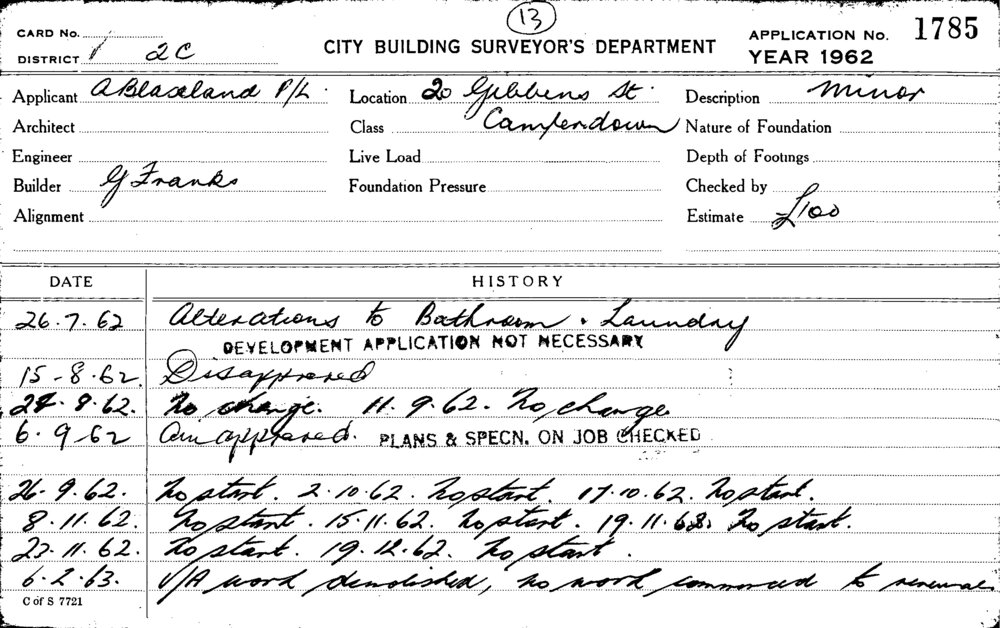 13
CARD No.
DISTRICT 2C
CITY BUILDING SURVEYOR'S DEPARTMENT
APPLICATION No. 1785
YEAR 1962
Applicant A Blaxland P/L. Location 20 Gibbens St. Description Minor
Architect Class Camperdown Nature of Foundation
Engineer Live Load Depth of Footings
Builder G Franks Foundation Pressure Checked by
Alignment Estimate £100
DATE HISTORY
26.7.62 Alterations to Bathroom & Laundry
DEVELOPMENT APPLICATION NOT NECESSARY
15-8.62. Disapproved
8.62. No change. 11.9.62. No change
6.9.62 approved. PLANS & SPECN. ON JOB CHECKED
26.9.62. No start. 2.10.62. No start. 17.10.62. No start.
8.11.62. No start. 15.11.62. No start. 19.11.62. No start.
11.62. No start. 19.12.62. No start.
6.2.63. V/A work demolished, no work commenced to renewal
C of S 7721